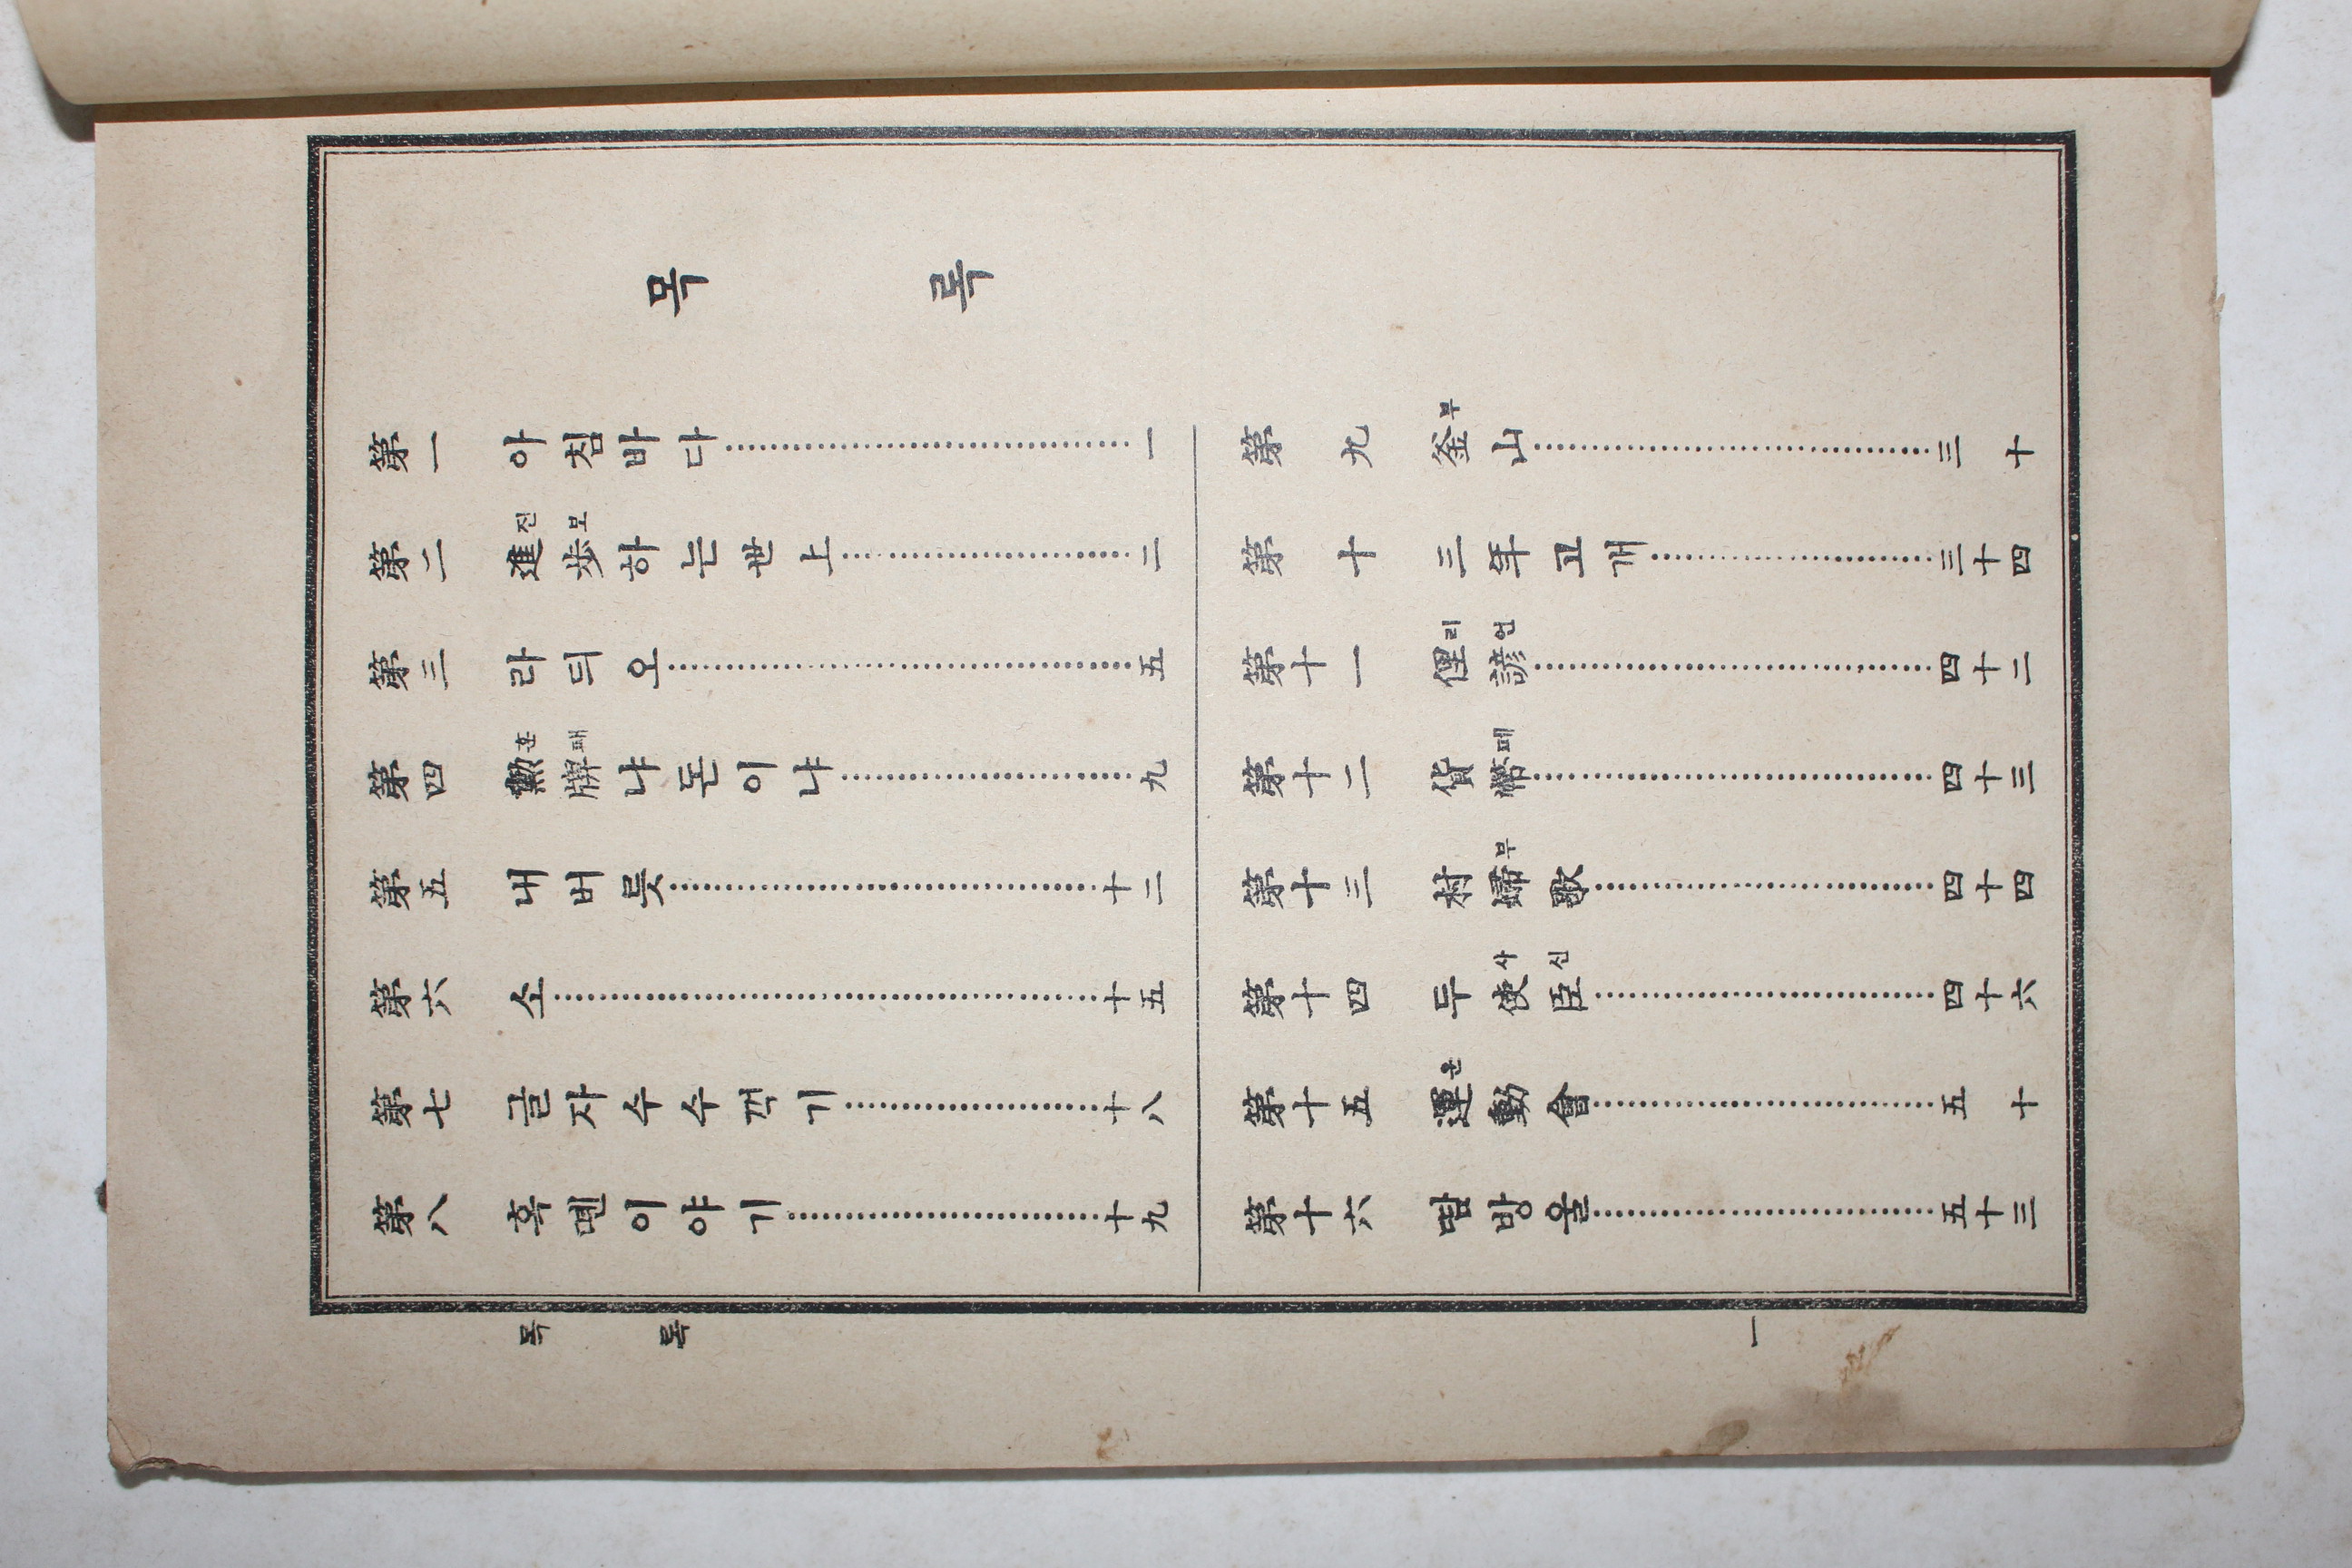 목록
第一 아침바다……一
第二 進진歩보하는世上……二
第三 라듸오……五
第四 勳훈牌패냐돈이냐……九
第五 내버릇……十二
第六 소……十五
第七 글자수수꺽기……十八
第八 혹뗀이야기……十九
第九 釜부山……三十
第十 三年고개……三十四
第十一 俚리諺언……四十二
第十二 貨幣페……四十三
第十三 村婦부歌……四十四
第十四 두使사臣신……四十六
第十五 運운動會……五十
第十六 땀방울……五十三
목록
一